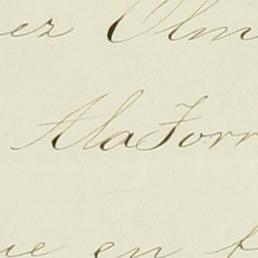 ez Olm
AlaForr
ue en f